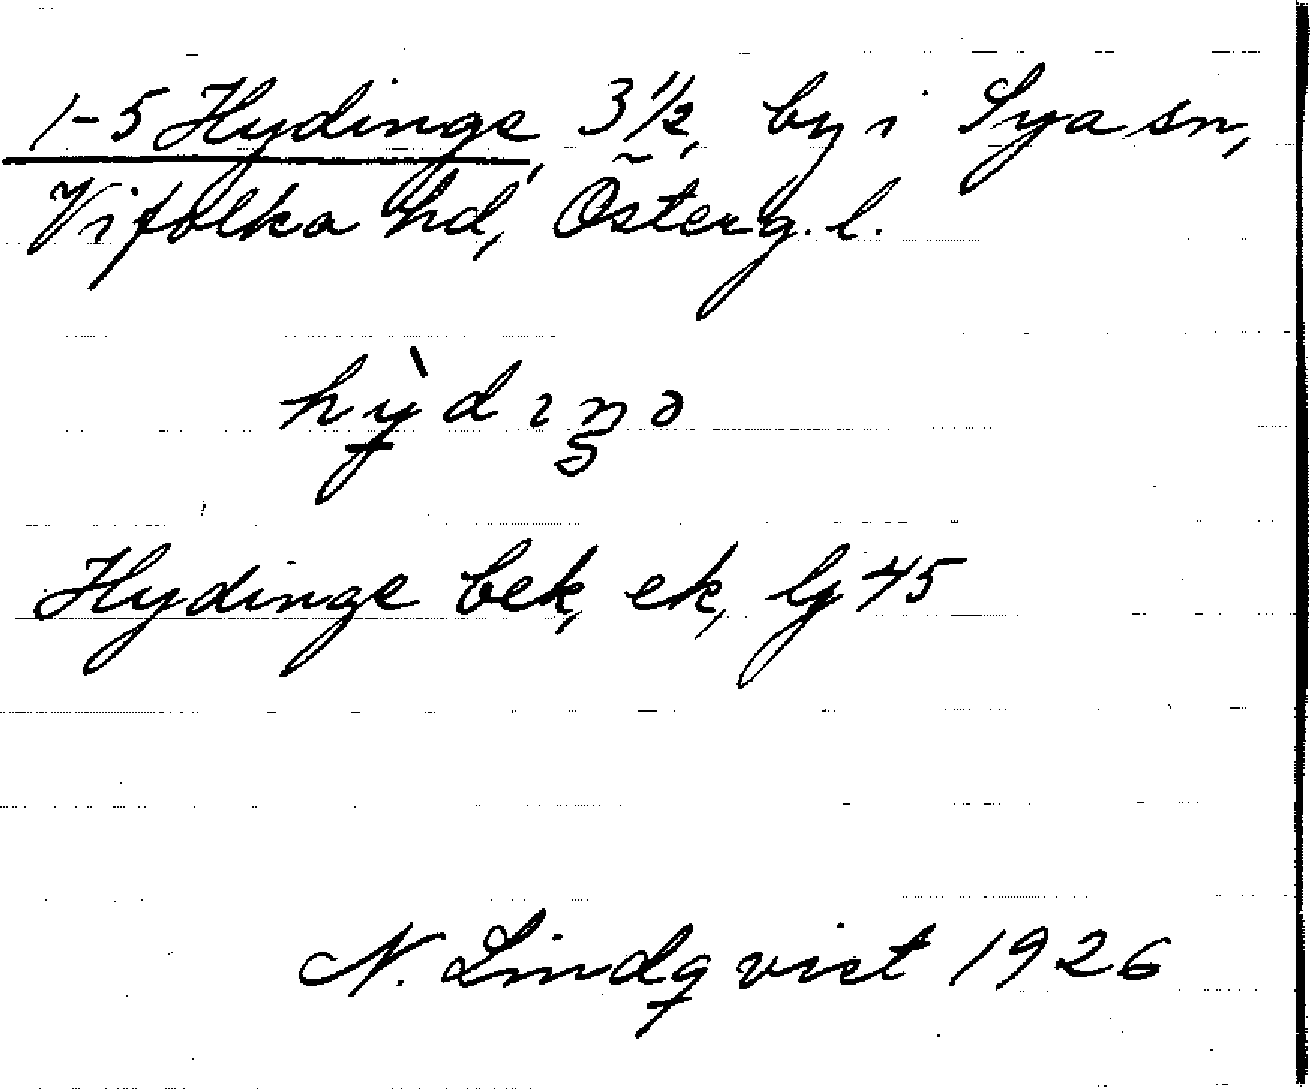 1-5 Hydinge, 3 1/2, by i Sya sn,
Vifolka hd, Österg. l.
hỳ̠dıŋə
Hydinge bek, ek, lj 45
N. Lindqvist 1926